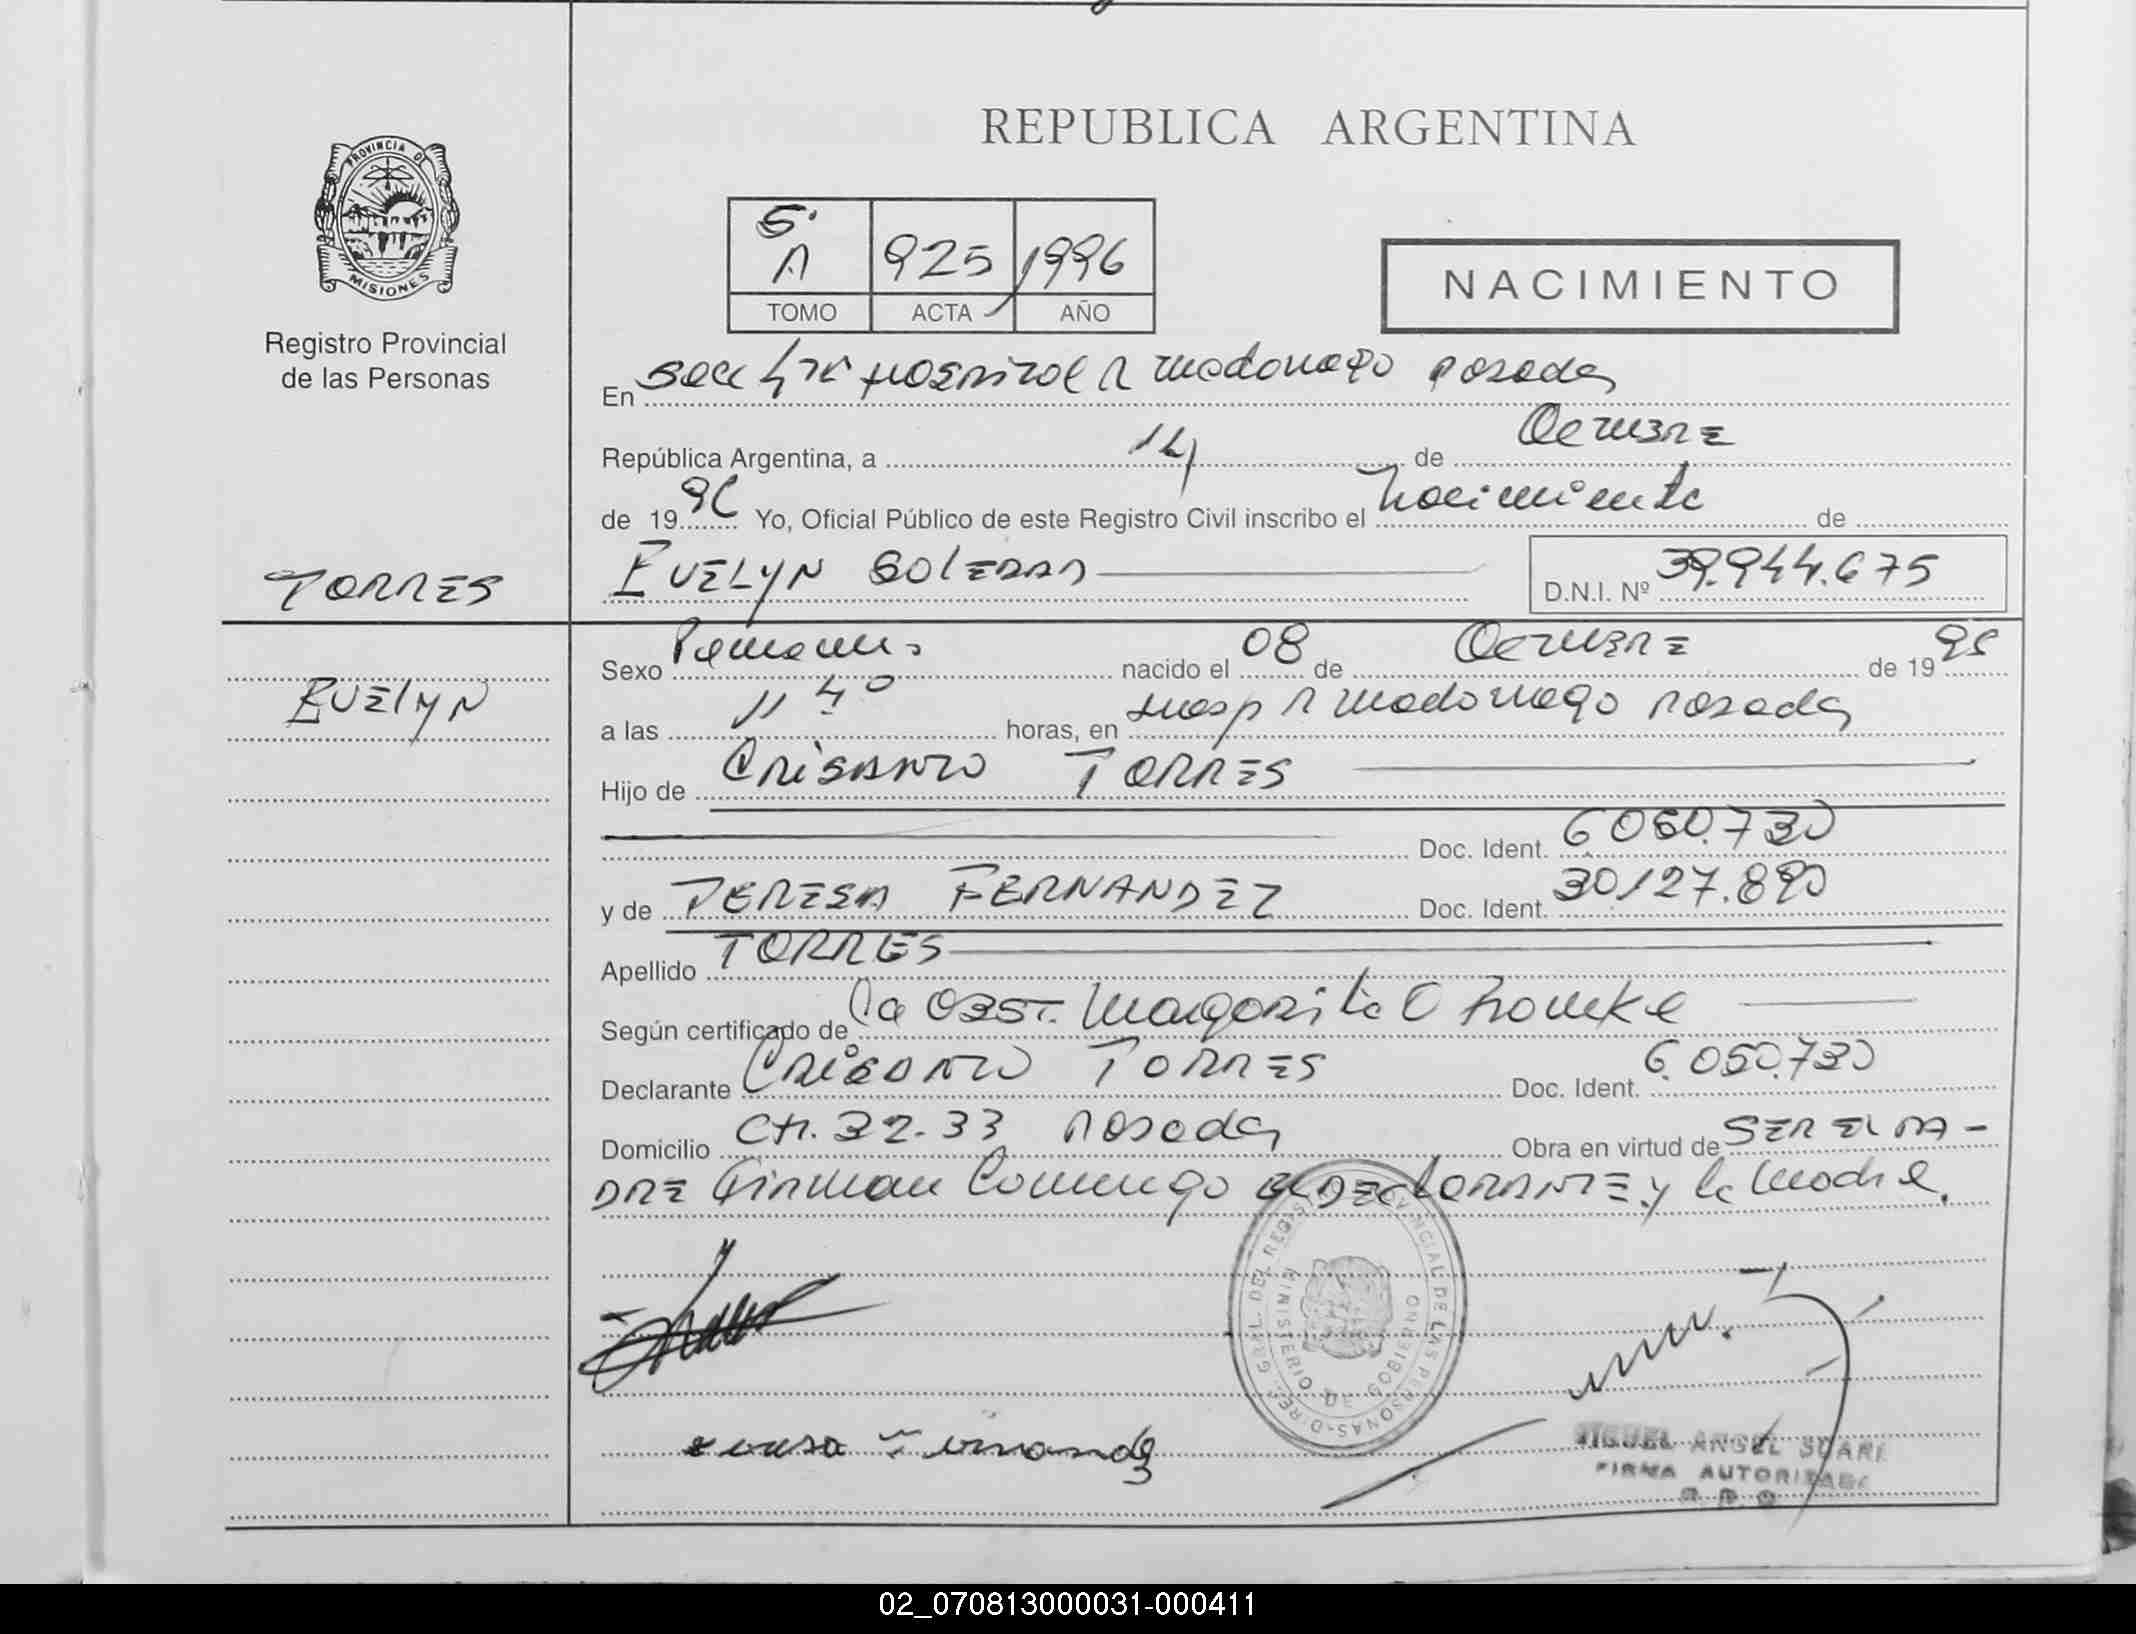 REPUBLICA ARGENTINA
PROVINCIA DE
MISIONES
Registro Provincial
de las Personas
5º
A 925 1996
TOMO ACTA AÑO
NACIMIENTO
En Secc Hospital R Madariaga Posadas
República Argentina, a 14 de Octubre
de 1996 Yo, Oficial Público de este Registro Civil inscribo el Nacimiento de
TORRES
EVELYN SOLEDAD
D.N.I. Nº 39.944.675
Evelyn
Sexo Femenino nacido el 08 de Octubre de 19
a las 11 40 horas, en Hosp R Madariaga Posadas
Hijo de CRISANTO TORRES
Doc. Ident. 6.050.730
y de TERESA FERNANDEZ Doc. Ident. 30.127.890
Apellido TORRES
Según certificado de la Obst. Margarita
Declarante CRISANTO TORRES Doc. Ident. 6.050.730
Domicilio Ch. 32-33 Posadas Obra en virtud de SER EL PA-
DRE Firman Conmigo el DECLARANTE y la Madre.
DIREC. GRAL. DEL REGISTRO PROVINCIAL DE LAS PERSONAS
MINISTERIO DE GOBIERNO
MIGUEL ANGEL SUARE
FIRMA AUTORIZADA
02_070813000031-000411